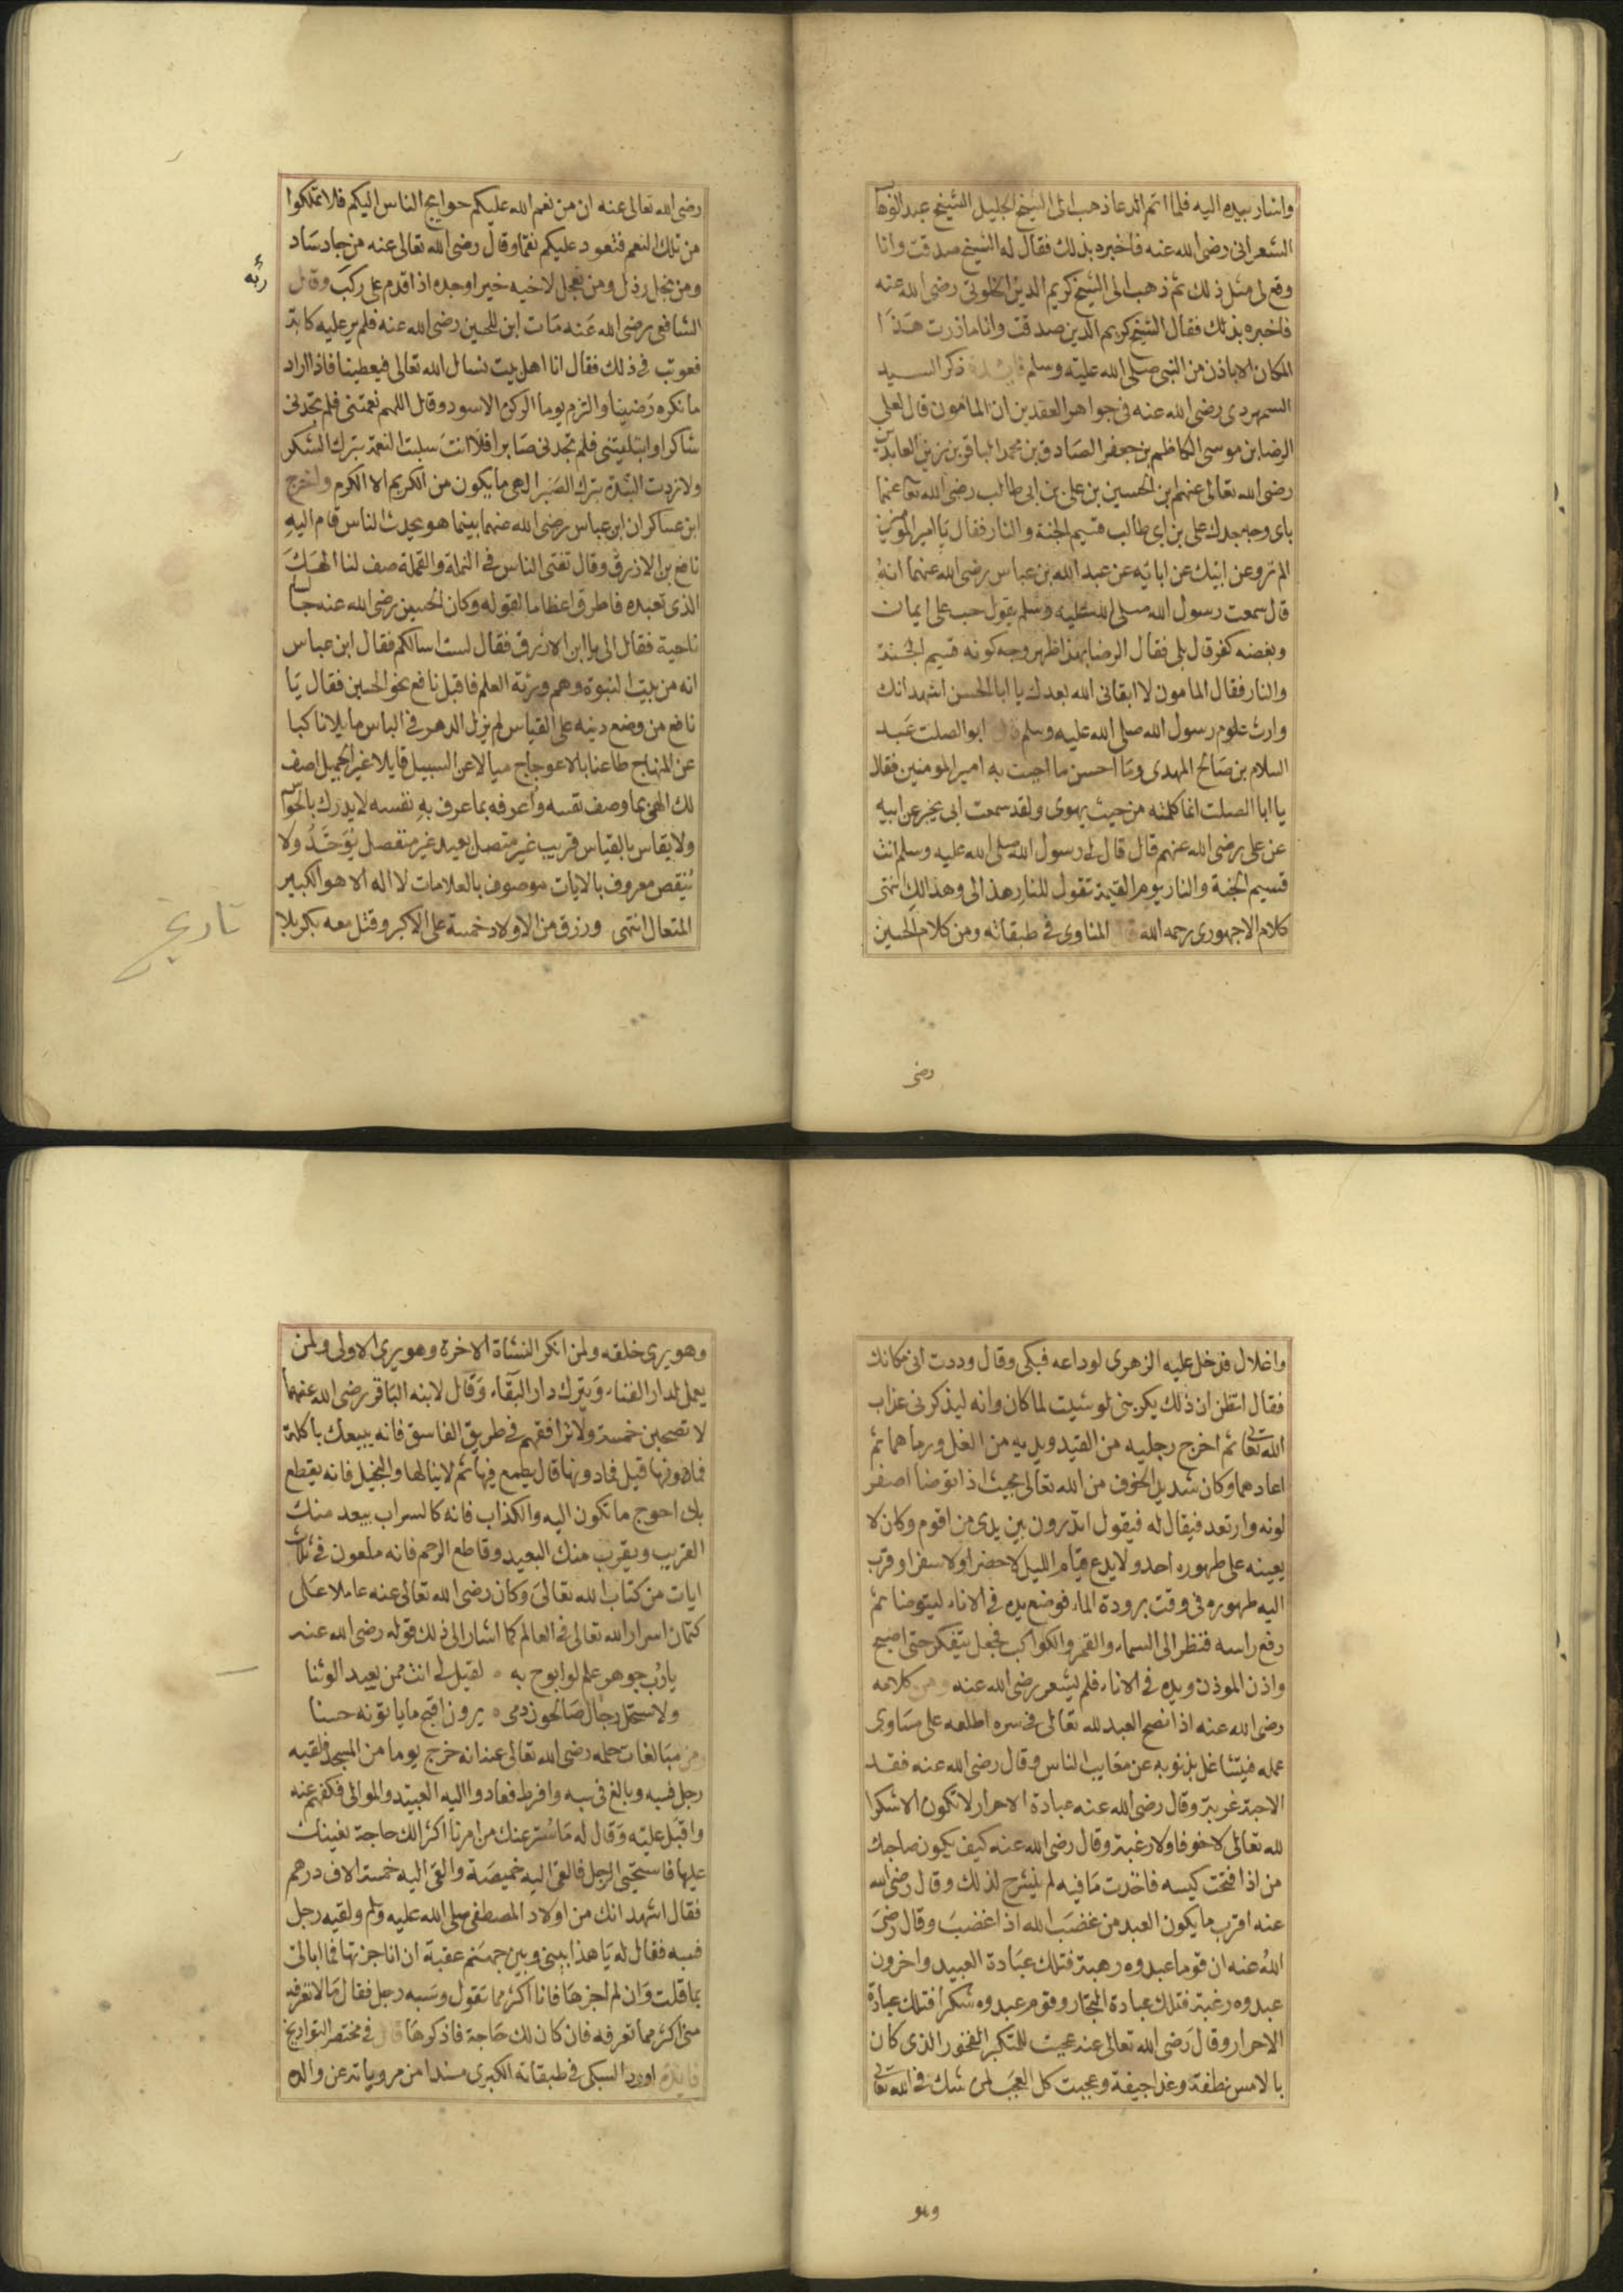 واشار بيده اليه فلما اتم الدعا ذهب الى الشيخ الجليل الشيخ عبد الوهاب
الشعرانى رضى الله عنه فاخبره بذلك فقال له الشيخ صدقت وانا
وقع لى مثل ذلك ثم ذهب الى الشيخ كريم الدين الخلوتى رضى الله عنه
فاخبره بذلك فقال الشيخ كريم الدين صدقت وانا مازرت هذا
المكان الا باذن من النبى صلى الله عليه وسلم فايدة ذكر السيد
السمهودى رضى الله عنه فى جواهر العقدين ان المامون قال لعلى
الرضا بن موسى الكاظم بن جعفر الصادق بن محمد الباقر بن زين العابدين
رضى الله تعالى عنهم ابن الحسين بن على بن ابى طالب رضى الله تعا عنهما
باى وجه جدك على بن ابى طالب قسيم الجنة والنار فقال يا امير المومنين
الم ترو عن ابيك عن ابائه عن عبد الله بن عباس رضى الله عنهما انه
قال سمعت رسول الله صلى الله عليه وسلم يقول حب على ايمان
وبغضه كفر قال بلى فقال الرضا بهذا ظهر وجه كونه قسيم الجنة
والنار فقال المامون لا ابقانى الله بعدك يا ابا الحسن اشهد انك
وارث علوم رسول الله صلى الله عليه وسلم قال ابو الصلت عبد
السلام بن صالح المهدى وما احسن ما اجبت به امير المومنين فقال
يا ابا الصلت انما كلمته من حيث يهوى ولقد سمعت ابى يخبر عن ابيه
عن على رضى الله عنهم قال قال لى رسول الله صلى الله عليه وسلم انت
قسيم الجنة والنار يوم القيمة تقول للنار هذا لى وهذا لك انتهى
كلام الاجهورى رحمه الله قال المناوى فى طبقاته ومن كلام الحسين
رضى
رضى الله تعالى عنه ان من نعم الله عليكم حوايج الناس اليكم فلا تملكوا
من تلك النعم فتعود عليكم نقما وقال رضى الله تعالى عنه من جاد ساد
ومن بخل رذل ومن تعجل لاخيه خيرا وجده اذا قدم على ركب وقال
ربه
الشافعى رضى الله عنه مات ابن للحسين رضى الله عنه فلم ير عليه كابة
فعوتب فى ذلك فقال انا اهل بيت نسال الله تعالى فيعطينا فاذا اراد
ما نكره رضينا والتزم يوما الركن الاسود وقال اللهم نعمتنى فلم تجدنى
شاكرا وابتليتنى فلم تجدنى صابرا فلا انت سلبت النعمة بترك الشكر
ولا زدت الشدة بترك الصبر الهى ما يكون من الكريم الا الكرم واخرج
ابن عساكر ان ابن عباس رضى الله عنهما بينما هو يحدث الناس قام اليه
نافع بن الازرق وقال تفتى الناس فى النملة والقملة صف لنا الهك
الذى تعبده فاطرق اعظاما لقوله وكان الحسين رضى الله عنه جالسا
ناحية فقال الى يا ابن الازرق فقال لست اسالكم فقال ابن عباس
انه من بيت النبوة وهم ورثة العلم فاقبل نافع نحو الحسين فقال يا
نافع من وضع دينه على القياس لم يزل الدهر فى الباس مايلا ناكبا
عن المنهاج طاعنا بالاعوجاج ميالا عن السبيل قايلا غير الجميل اصف
لك الهى بما وصف نفسه واعرفه بما عرف به نفسه لا يدرك بالحواس
ولا يقاس بالقياس قريب غير متصل بعيد غير منفصل يوحد ولا
ينقص معروف بالايات موصوف بالعلامات لا اله الا هو الكبير
المتعال انتهى ورزق من الاولاد خمسة على الاكبر وقتل معه بكربلا
تاريخ
واغلال فدخل عليه الزهرى لوداعه فبكى وقال وددت انى مكانك
فقال اتظن ان ذلك يكربنى لو شيت لما كان وانه ليذكرنى عذاب
الله تعالى ثم اخرج رجليه من القيد ويديه من الغل ورماهما ثم
اعادهما وكان شديد الخوف من الله تعالى بحيث اذا توضا اصفر
لونه وارتعد فيقال له فيقول اتدرون بين يدى من اقوم وكان لا
يعينه على طهوره احد ولا يدع قيام الليل لا حضرا ولا سفرا وقرب
اليه طهوره فى وقت برودة الماء فوضع يده فى الاناء ليتوضا ثم
رفع راسه فنظر الى السماء والقمر والكواكب فجعل يتفكر حتى اصبح
واذن الموذن ويده فى الاناء فلم يشعر رضى الله عنه ومن كلامه
رضى الله عنه اذا نصح العبد لله تعالى فى سره اطلعه على مساوى
عمله فيتشاغل بذنوبه عن معايب الناس وقال رضى الله عنه فقد
الاحبة غربة وقال رضى الله عنه عبادة الاحرار لا تكون الا شكرا
لله تعالى لا خوفا ولا رغبة وقال رضى الله عنه كيف يكون صاحبك
من اذا فتحت كيسه فاخذت ما فيه لم ينشرح لذلك وقال رضى الله
عنه اقرب ما يكون العبد من غضب الله اذا غضب وقال رضى
الله عنه ان قوما عبدوه رهبة فتلك عبادة العبيد واخرون
عبدوه رغبة فتلك عبادة التجار وقوم عبدوه شكرا فتلك عبادة
الاحرار وقال رضى الله تعالى عنه عجبت للمتكبر الفخور الذى كان
بالامس نطفة وغدا جيفة وعجبت كل العجب لمن شك فى الله تعالى
وهو
وهو يرى خلقه ولمن انكر النشاة الاخرة وهو يرى الاولى ولمن
يعمل لدار الفناء ويترك دار البقاء وقال لابنه الباقر رضى الله عنهما
لا تصحبن خمسة ولا ترافقهم فى طريق الفاسق فانه يبيعك باكلة
فما دونها قيل فما دونها قال يطمع فيها ثم لا ينالها والبخيل فانه يقطع
بك احوج ما تكون اليه والكذاب فانه كالسراب يبعد منك
القريب ويقرب منك البعيد وقاطع الرحم فانه ملعون فى ثلاث
ايات من كتاب الله تعالى وكان رضى الله تعالى عنه عاملا على
كتمان اسرار الله تعالى فى العالم كما اشار الى ذلك قوله رضى الله عنه
يارب جوهر علم لو ابوح به ۰ لقيل لى انت ممن يعبد الوثنا
ولاستحل رجال صالحون دمى ۰ يرون اقبح ما ياتونه حسنا
ومن مبالغات حلمه رضى الله تعالى عنه انه خرج يوما من المسجد فلقيه
رجل فسبه وبالغ فى سبه وافرط فعادوا اليه العبيد والموالى فكفهم عنه
واقبل عليه وقال له ما ستر عنك من امرنا اكثر الك حاجة نعينك
عليها فاستحيى الرجل فالقى اليه خميصة والقى اليه خمسة الاف درهم
فقال اشهد انك من اولاد المصطفى صلى الله عليه وسلم ولقيه رجل
فسبه فقال له يا هذا بينى وبين جهنم عقبة ان انا جزتها فما ابالى
بما قلت وان لم اجزها فانا اكثر مما تقول وسبه رجل فقال ما لا تعرفه
منى اكثر مما تعرفه فان كان لك حاجة فاذكرها قال فى مختصر التواريخ
فايدة اورد السبكى فى طبقاته الكبرى مسندا من مروياته عن والده